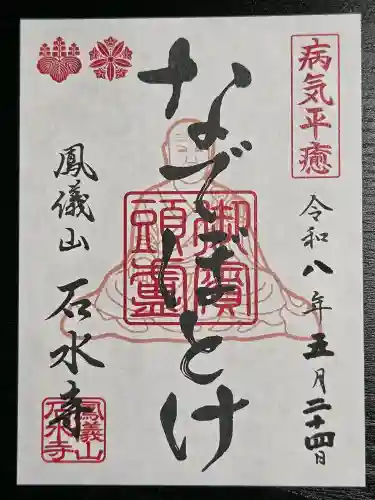 病気平癒
令和八年五月二十四日
なでぼとけ
鳳儀山
石水寺
鳳義山
石水寺